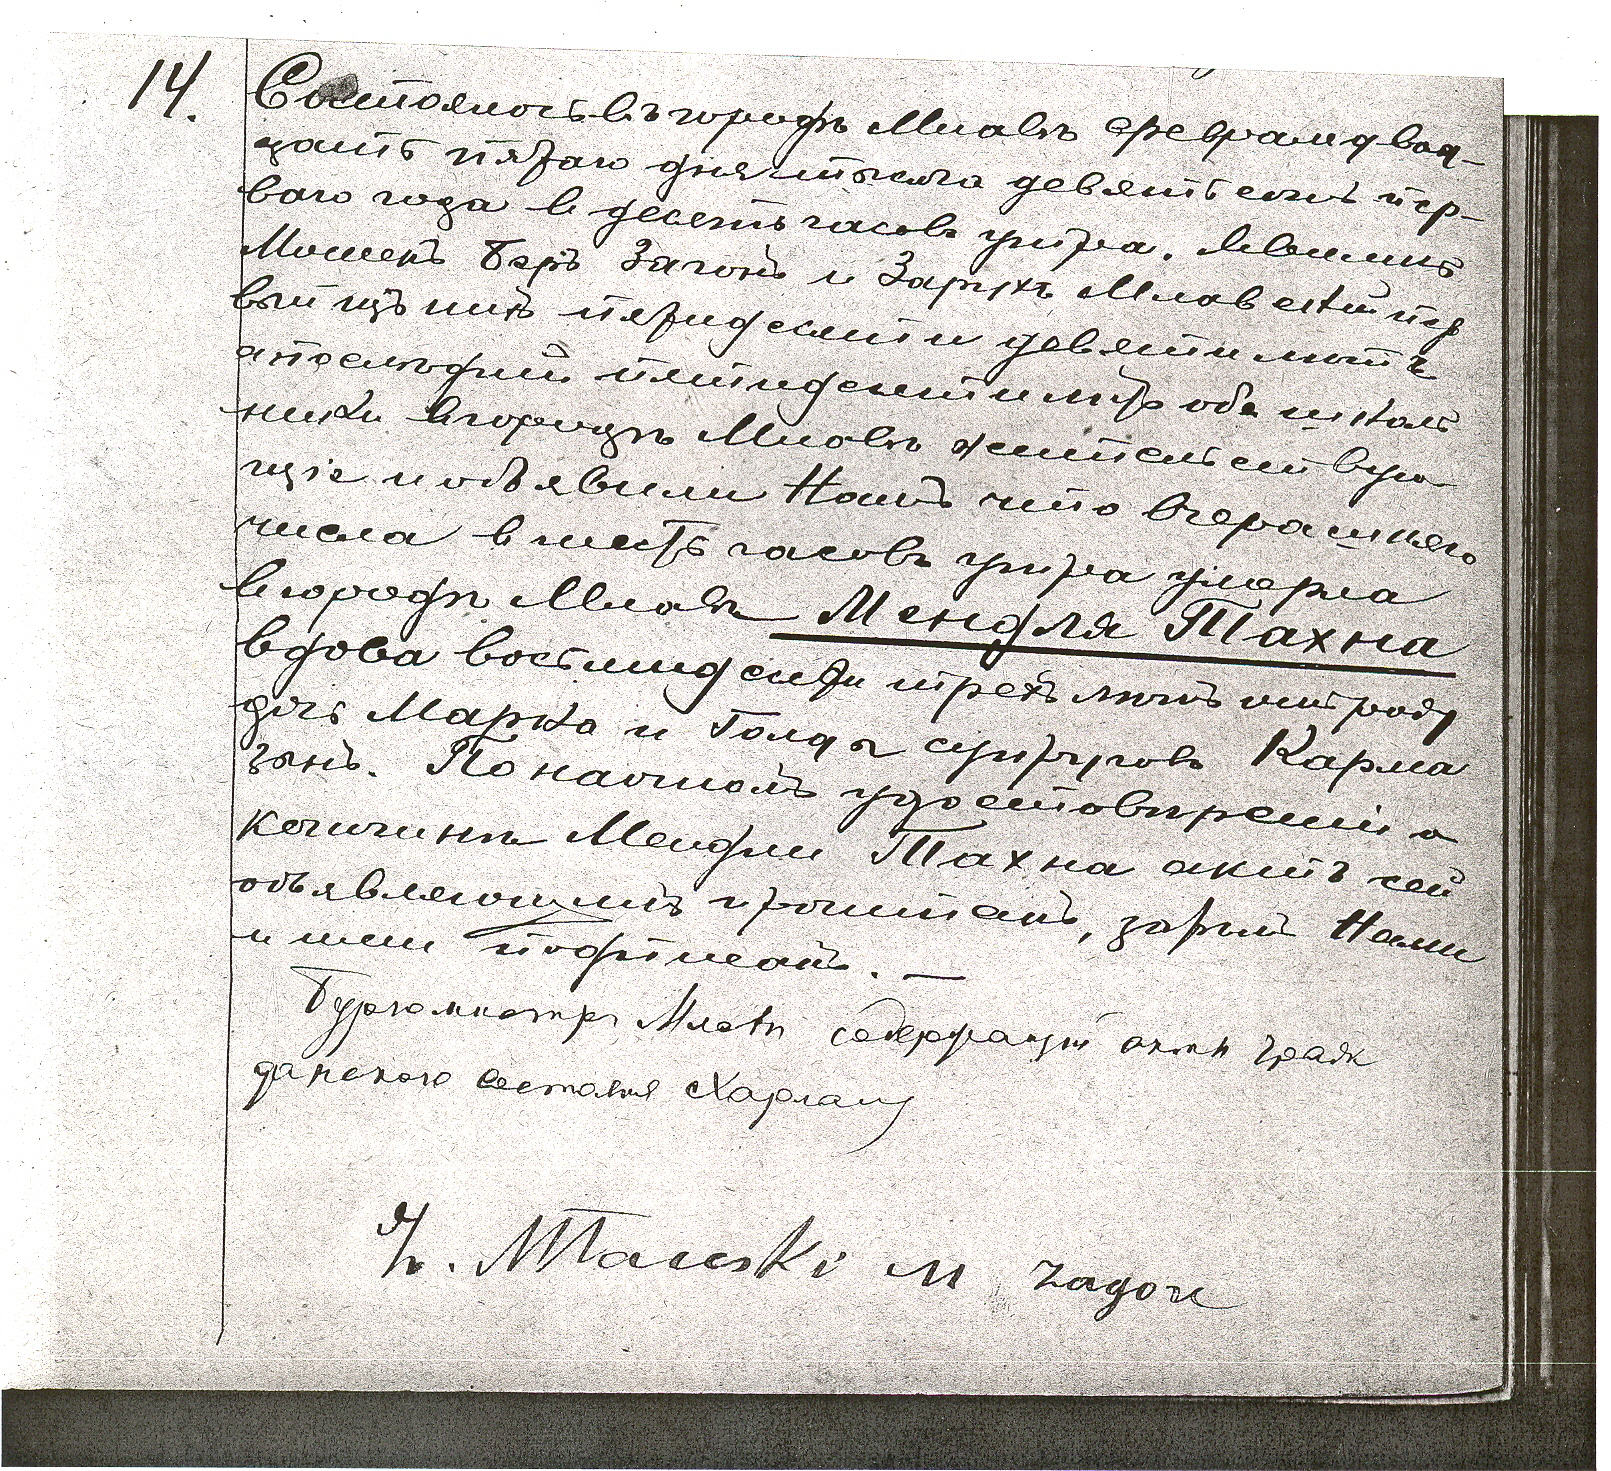 14.
Состоялось въ городѣ Млавѣ февраля двад-
цать пятаго дня тысяча девятьсотъ пер-
ваго года в десять часовъ утра. Явились
Мошекъ Беръ Загонъ и Зарухъ Млавскій пер
вый изъ нихъ пятидесяти девяти лѣтъ
а послѣдній пятидесяти лѣтъ оба школь
ники в городѣ Млавѣ жительствую
щіе и объявили Намъ что вчерашняго
числа в шесть часовъ утра умерла
в городѣ Млавѣ Мендля Тахна
вдова восьмидесяти трехъ лѣтъ отроду
дочь Марка и Голды супруговъ Карма
зынъ. По наочномъ удостовѣреніи о
кончинѣ Мендли Тахна актъ сей
объявляющимъ прочитанъ, затѣмъ Нами
и ими подписанъ. —
Бургомистръ Млавы содержащій акты граж
данскаго состоянія
Mlawski M Zagon